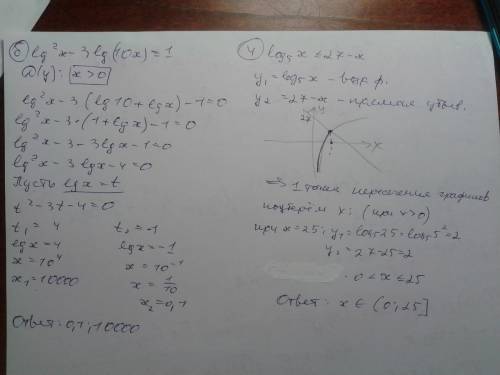 б) lg²x-3lg(10x)=1
D(y): x>0
lg²x-3(lg10+lgx)-1=0
lg²x-3·(1+lgx)-1=0
lg²x-3-3lgx-1=0
lg²x-3lgx-4=0
Пусть lgx=t
t²-3t-4=0
t₁=4 t₂=-1
lgx=4 lgx=-1
x=10⁴ x=10⁻¹
x₁=10000 x=1/10
x₂=0,1
Ответ: 0,1; 10000
4) log₅x≤27-x
y₁=log₅x - возр. ф.
y₂=27-x - прямая убыв.
y
27
x
⇒ 1 точка пересечения графиков
подберём x: (при x>0)
при x=25: y₁=log₅25=log₅5²=2
y₂=27-25=2
0<x≤25
Ответ: x∈(0;25]